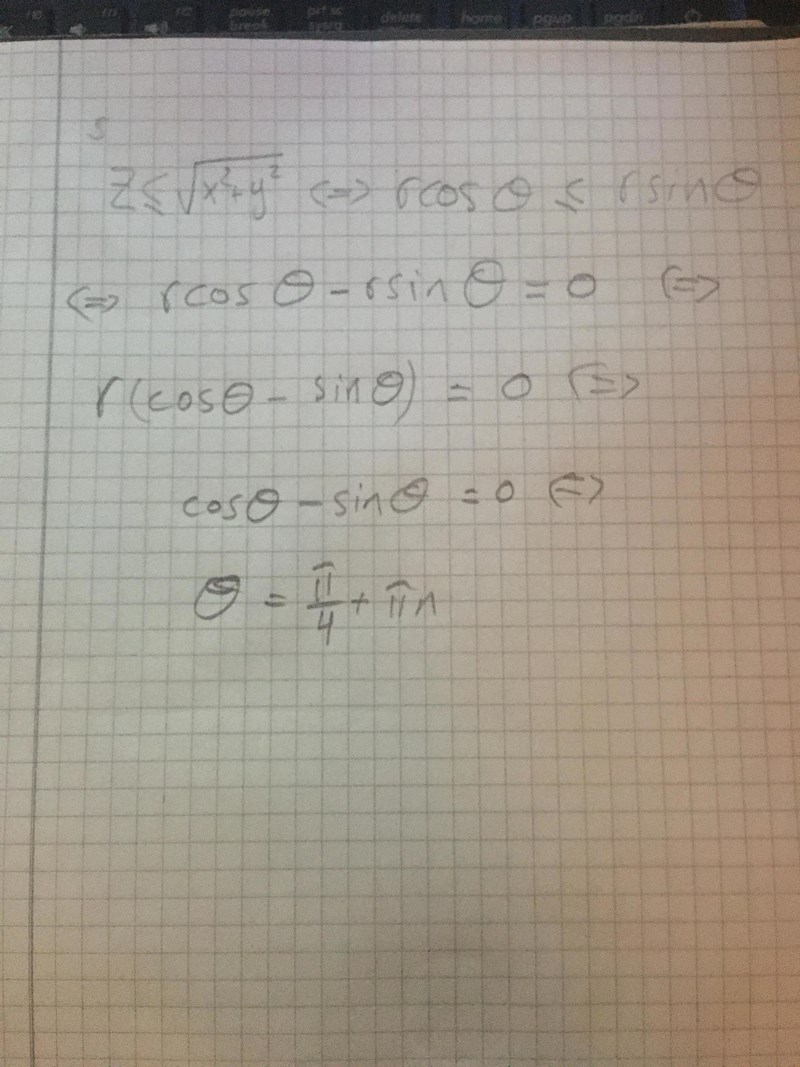 f10 f11 f12 pause break prt sc sysrq delete home pgup pgdn
s
Z ≤ √x²+y² <=> rcosθ ≤ rsinθ
<=> rcosθ - rsinθ = 0 <=>
r(cosθ - sinθ) = 0 <=>
cosθ - sinθ = 0 <=>
θ = π/4 + πn